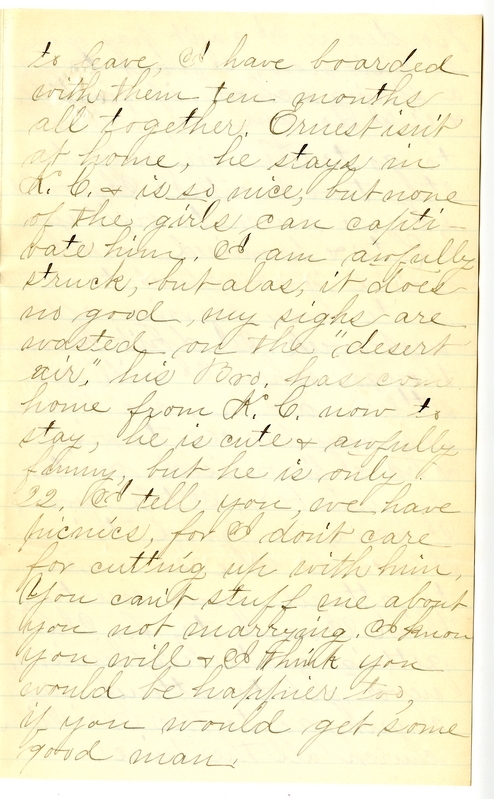 to leave, I have boarded
with them ten months
all together. Ernest isn't
at home, he stays in
K. C. & is so nice, but none
of the girls can capti-
vate him. I am awfully
struck, but alas, it does
no good, my sighs are
wasted on the "desert
air," his Bro. has come
home from K. C. now to
stay, he is cute & awfully
funny, but he is only
22. I tell you, we have
picnics, for I don't care
for cutting up with him.
You can't stuff me about
you not marrying. I know
you will & I think you
would be happier too,
if you would get some
good man.